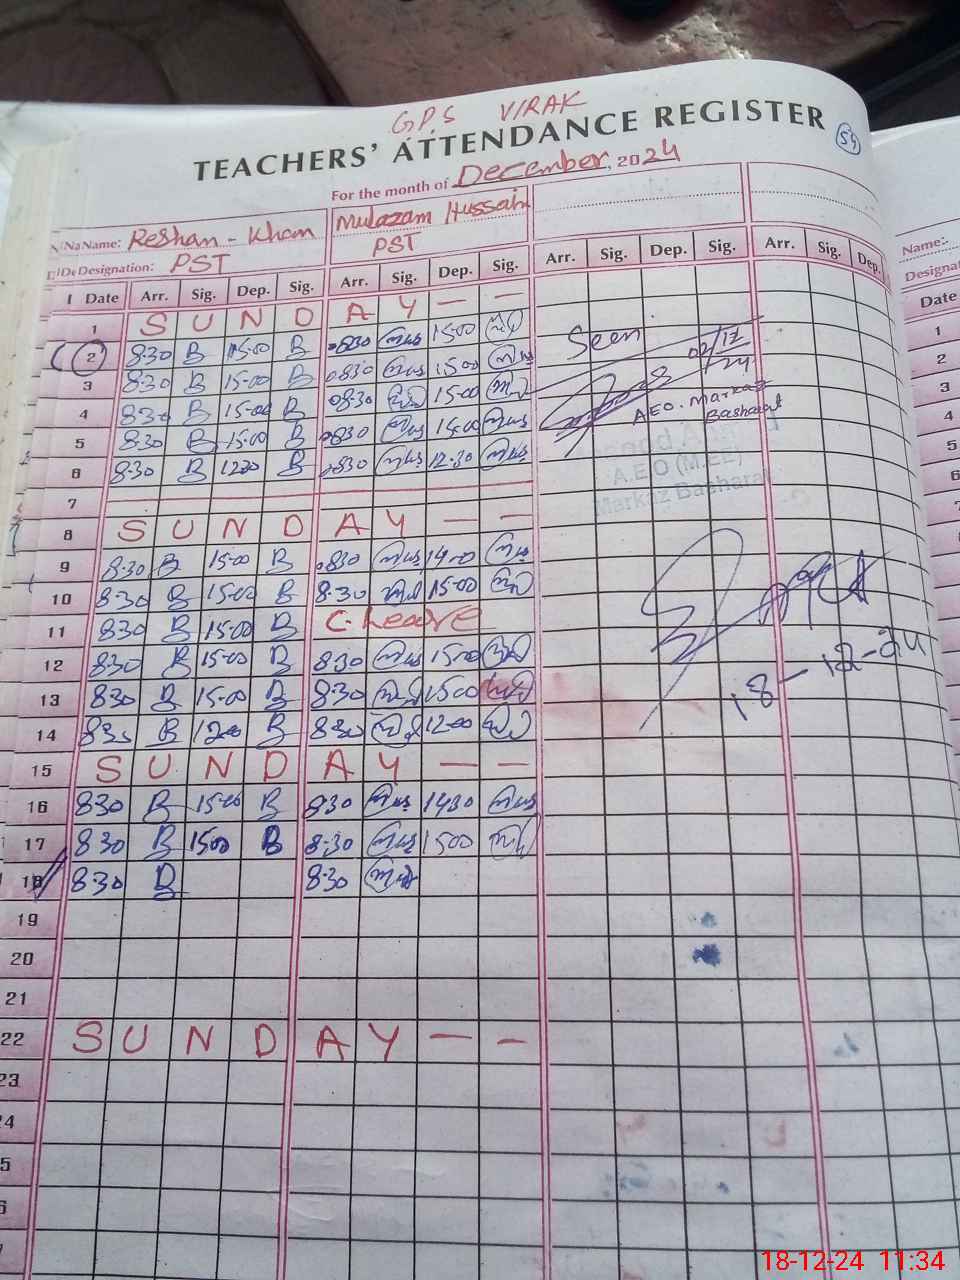 G.P.S VIRAK
TEACHERS' ATTENDANCE REGISTER
59
For the month of December, 2024
Name: Reshan - Khan Mulazam Hussain
Designation: PST PST
Date Arr. Sig. Dep. Sig. Arr. Sig. Dep. Sig. Arr. Sig. Dep. Sig. Arr. Sig. Dep.
1 S U N D A Y — —
2 8.30 B 15-00 B 0830 15-00
3 8.30 B 15-00 B 0830 1500
4 8.30 B 15-00 B 08.30 15-00
5 8.30 B 15-00 B 0830
6 8.30 B 1230 B 0830 12.30
7
8 S U N D A Y — —
9 8.30 B 15-00 B 830 14-00
10 8.30 B 15-00 B 8.30 15-00
11 830 B 15-00 B C. Leave
12 830 B 15-00 B 8.30 1500
13 8.30 B 15-00 B 8.30 1500
14 830 B 1200 B 830 12-00
15 S U N D A Y — —
16 830 B 15-00 B 830 1430
17 830 B 1500 B 8.30 1500
18 8.30 B 8.30
19
20
21
22 S U N D A Y — —
23
Seen
02/12
24
A.E.O. Markaz
Basharat
A.E.O (M.EE)
Markaz Basharat
18-12-24
Name:-
Date
1
2
3
4
5
6
18-12-24 11:34